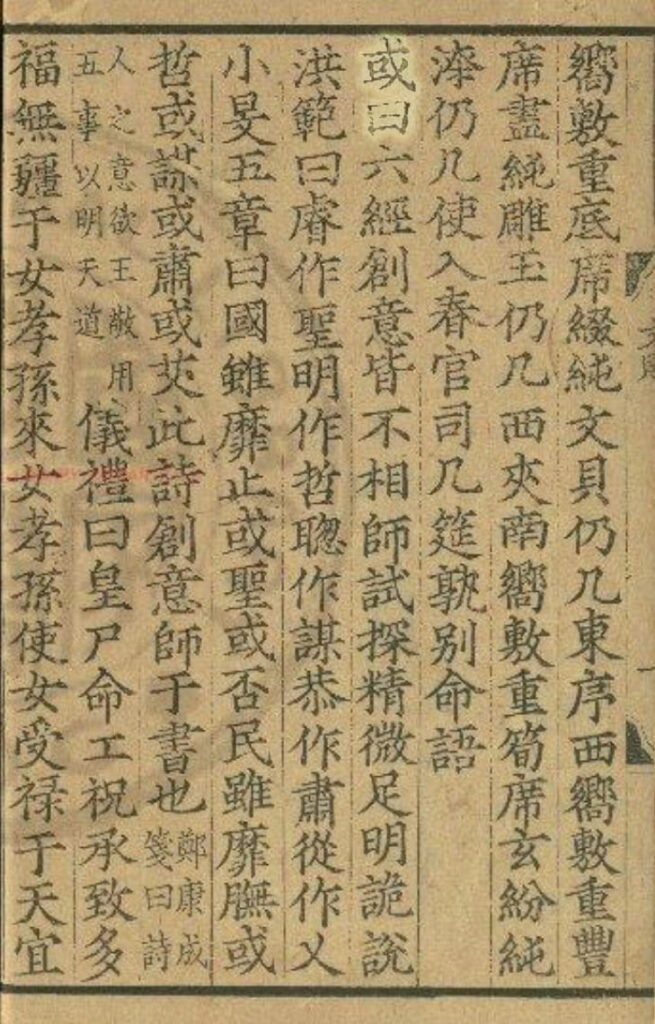 嚮敷重底席綴純文貝仍几東序西嚮敷重豐
席畫純雕玉仍几西夾南嚮敷重筍席玄紛純
漆仍几使入春官司几筵孰別命語
或曰六經創意皆不相師試探精微足明詭說
洪範曰睿作聖明作哲聰作謀恭作肅從作乂
小旻五章曰國雖靡止或聖或否民雖靡膴或
哲或謀或肅或艾此詩創意師于書也
鄭康成
箋曰詩
人之意欲王敬用
五事以明天道
儀禮曰皇尸命工祝承致多
福無疆于女孝孫來女孝孫使女受禄于天宜